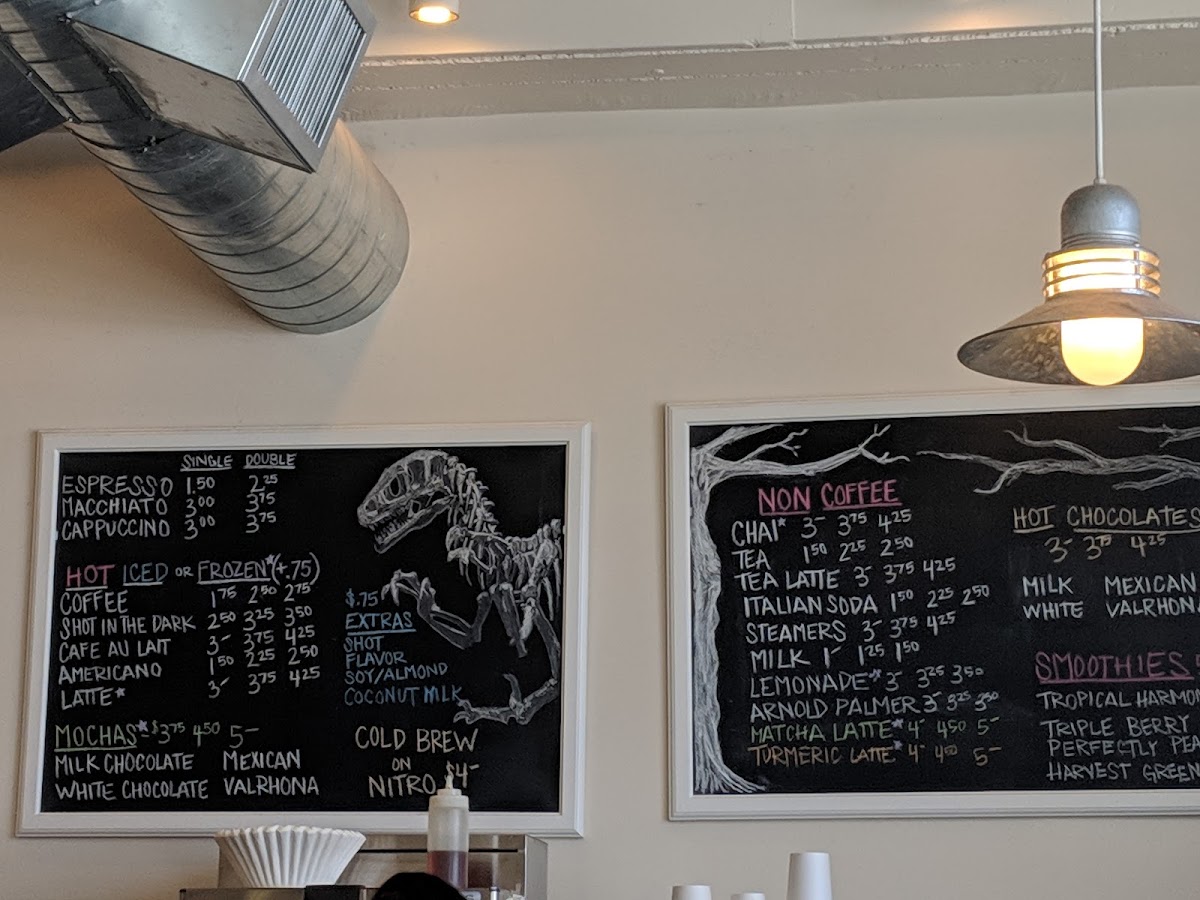 SINGLE DOUBLE
ESPRESSO 1.50 2.25
MACCHIATO 3.00 3.75
CAPPUCCINO 3.00 3.75
HOT ICED OR FROZEN* (+.75)
COFFEE 1.75 2.50 2.75
SHOT IN THE DARK 2.50 3.25 3.50
CAFE AU LAIT 3- 3.75 4.25
AMERICANO 1.50 2.25 2.50
LATTE* 3- 3.75 4.25
MOCHAS* $3.75 4.50 5-
MILK CHOCOLATE MEXICAN
WHITE CHOCOLATE VALRHONA
$.75
EXTRAS
SHOT
FLAVOR
SOY/ALMOND
COCONUT MILK
COLD BREW
ON
NITRO $4-
NON COFFEE
CHAI* 3- 3.75 4.25
TEA 1.50 2.25 2.50
TEA LATTE 3- 3.75 4.25
ITALIAN SODA 1.50 2.25 2.50
STEAMERS 3- 3.75 4.25
MILK 1- 1.25 1.50
LEMONADE* 3- 3.25 3.50
ARNOLD PALMER 3- 3.25 3.50
MATCHA LATTE* 4- 4.50 5-
TURMERIC LATTE* 4- 4.50 5-
HOT CHOCOLATES
3- 3.75 4.25
MILK MEXICAN
WHITE VALRHON
SMOOTHIES
TROPICAL HARMO
TRIPLE BERRY
PERFECTLY PEA
HARVEST GREEN